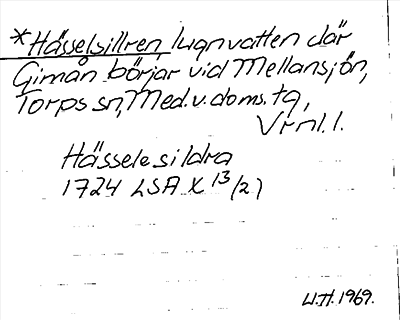 *Hässelsillren, lugnvatten där
Gimån börjar vid Mellansjön,
Torps sn, Med. v. doms. tg,
Vrnl. l.
Hässelesildra
1724 LSA X 13/2)
U.H. 1969.